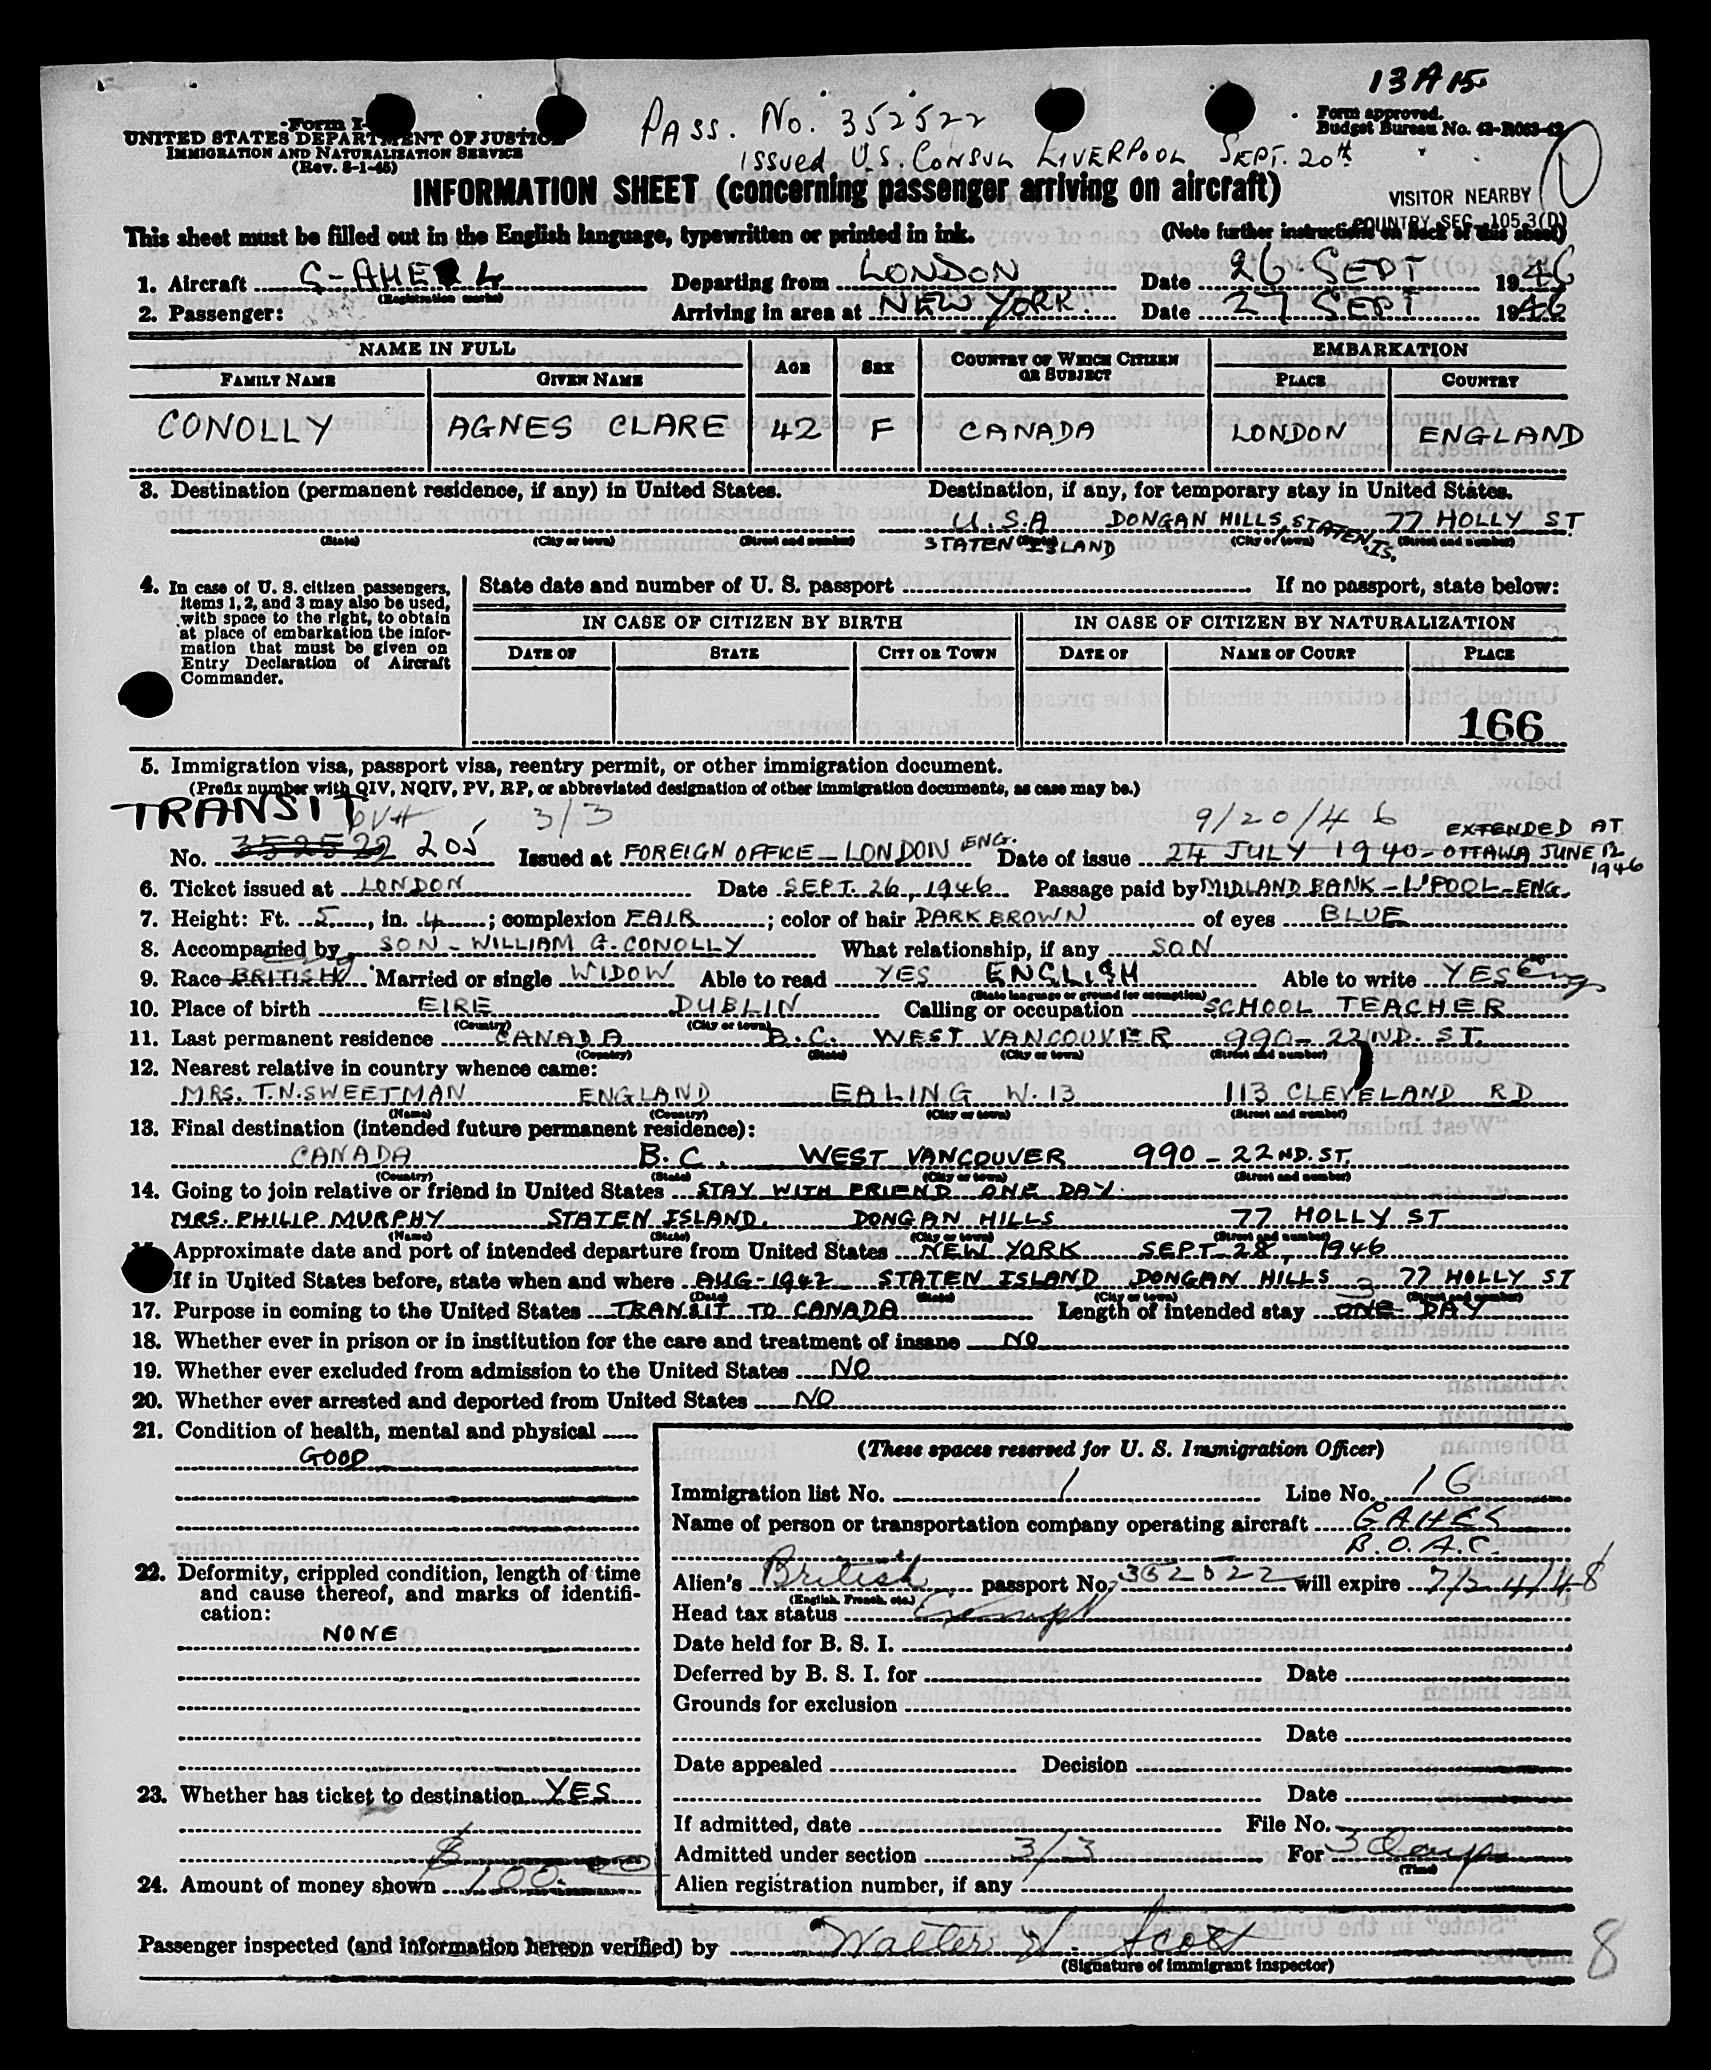 13 A 15
Form I-
UNITED STATES DEPARTMENT OF JUSTICE
IMMIGRATION AND NATURALIZATION SERVICE
(Rev. 8-1-45)
PASS. No. 352522
issued U.S. CONSUL LIVERPOOL SEPT. 20th
Form approved.
Budget Bureau No.
INFORMATION SHEET (concerning passenger arriving on aircraft)
VISITOR NEARBY
COUNTRY SEC. 105.3(D)
This sheet must be filled out in the English language, typewritten or printed in ink.
(Note further instructions on back of this sheet)
1. Aircraft Departing from LONDON Date 26 SEPT 1946
(Registration marks)
2. Passenger: Arriving in area at NEW YORK. Date 27 SEPT 1946
NAME IN FULL AGE SEX COUNTRY OF WHICH CITIZEN OR SUBJECT EMBARKATION
FAMILY NAME GIVEN NAME PLACE COUNTRY
CONOLLY AGNES CLARE 42 F CANADA LONDON ENGLAND
3. Destination (permanent residence, if any) in United States. Destination, if any, for temporary stay in United States.
U.S.A DONGAN HILLS, STATEN IS. 77 HOLLY ST
(State) (City or town) (Street and number) (State) (City or town) (Street and number)
STATEN ISLAND
4. In case of U. S. citizen passengers, items 1, 2, and 3 may also be used, with space to the right, to obtain at place of embarkation the information that must be given on Entry Declaration of Aircraft Commander.
State date and number of U. S. passport If no passport, state below:
IN CASE OF CITIZEN BY BIRTH IN CASE OF CITIZEN BY NATURALIZATION
DATE OF STATE CITY OR TOWN DATE OF NAME OF COURT PLACE
166
5. Immigration visa, passport visa, reentry permit, or other immigration document.
(Prefix number with QIV, NQIV, PV, RP, or abbreviated designation of other immigration documents, as case may be.)
TRANSIT PV# 3/3 9/20/46 EXTENDED AT
No. 352522 205 Issued at FOREIGN OFFICE - LONDON ENG. Date of issue 24 JULY 1940 - OTTAWA JUNE 12
1946
6. Ticket issued at LONDON Date SEPT. 26, 1946 Passage paid by MIDLAND BANK - L'POOL - ENG.
7. Height: Ft. 5, in. 4; complexion FAIR; color of hair DARK BROWN of eyes BLUE
8. Accompanied by SON - WILLIAM G. CONOLLY What relationship, if any SON
9. Race BRITISH Married or single WIDOW Able to read YES ENGLISH Able to write YES Eng
(State language or ground for exemption)
10. Place of birth EIRE DUBLIN Calling or occupation SCHOOL TEACHER
(Country) (City or town)
11. Last permanent residence CANADA B.C. WEST VANCOUVER 990 - 22ND. ST.
(Country) (State) (City or town) (Street and number)
12. Nearest relative in country whence came:
MRS. T.N. SWEETMAN ENGLAND EALING W.13 113 CLEVELAND RD
(Name) (Country) (City or town) (Street and number)
13. Final destination (intended future permanent residence):
CANADA B.C. WEST VANCOUVER 990 - 22ND. ST.
(Country) (State) (City or town) (Street and number)
14. Going to join relative or friend in United States STAY WITH FRIEND ONE DAY.
MRS. PHILIP MURPHY STATEN ISLAND, DONGAN HILLS 77 HOLLY ST
(Name) (State) (City or town) (Street and number)
Approximate date and port of intended departure from United States NEW YORK SEPT. 28, 1946
If in United States before, state when and where AUG - 1942 STATEN ISLAND DONGAN HILLS 77 HOLLY ST
(Date) (State) (City or town) (Street and number)
17. Purpose in coming to the United States TRANSIT TO CANADA Length of intended stay ONE 3 DAY
18. Whether ever in prison or in institution for the care and treatment of insane NO
19. Whether ever excluded from admission to the United States NO
20. Whether ever arrested and deported from United States NO
21. Condition of health, mental and physical
GOOD
22. Deformity, crippled condition, length of time and cause thereof, and marks of identification:
NONE
23. Whether has ticket to destination YES
24. Amount of money shown $100.
(These spaces reserved for U. S. Immigration Officer)
Immigration list No. 1 Line No. 16
Name of person or transportation company operating aircraft
B.O.A.C.
Alien's British passport No. will expire 7/24/48
(English, French, etc.)
Head tax status Exempt
Date held for B. S. I.
Deferred by B. S. I. for Date
Grounds for exclusion
Date
Date appealed Decision
Date
If admitted, date File No.
Admitted under section 3/3 For 3 Days
(Time)
Alien registration number, if any
Passenger inspected (and information hereon verified) by Walter H. Scott
(Signature of immigrant inspector)
8